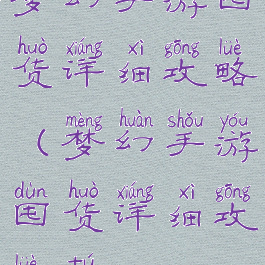 梦幻手游囤
huò xiáng xì gōng lüè
货详细攻略
mèng huàn shǒu yóu
（梦幻手游
dùn huò xiáng xì gōng
囤货详细攻
lüè tú